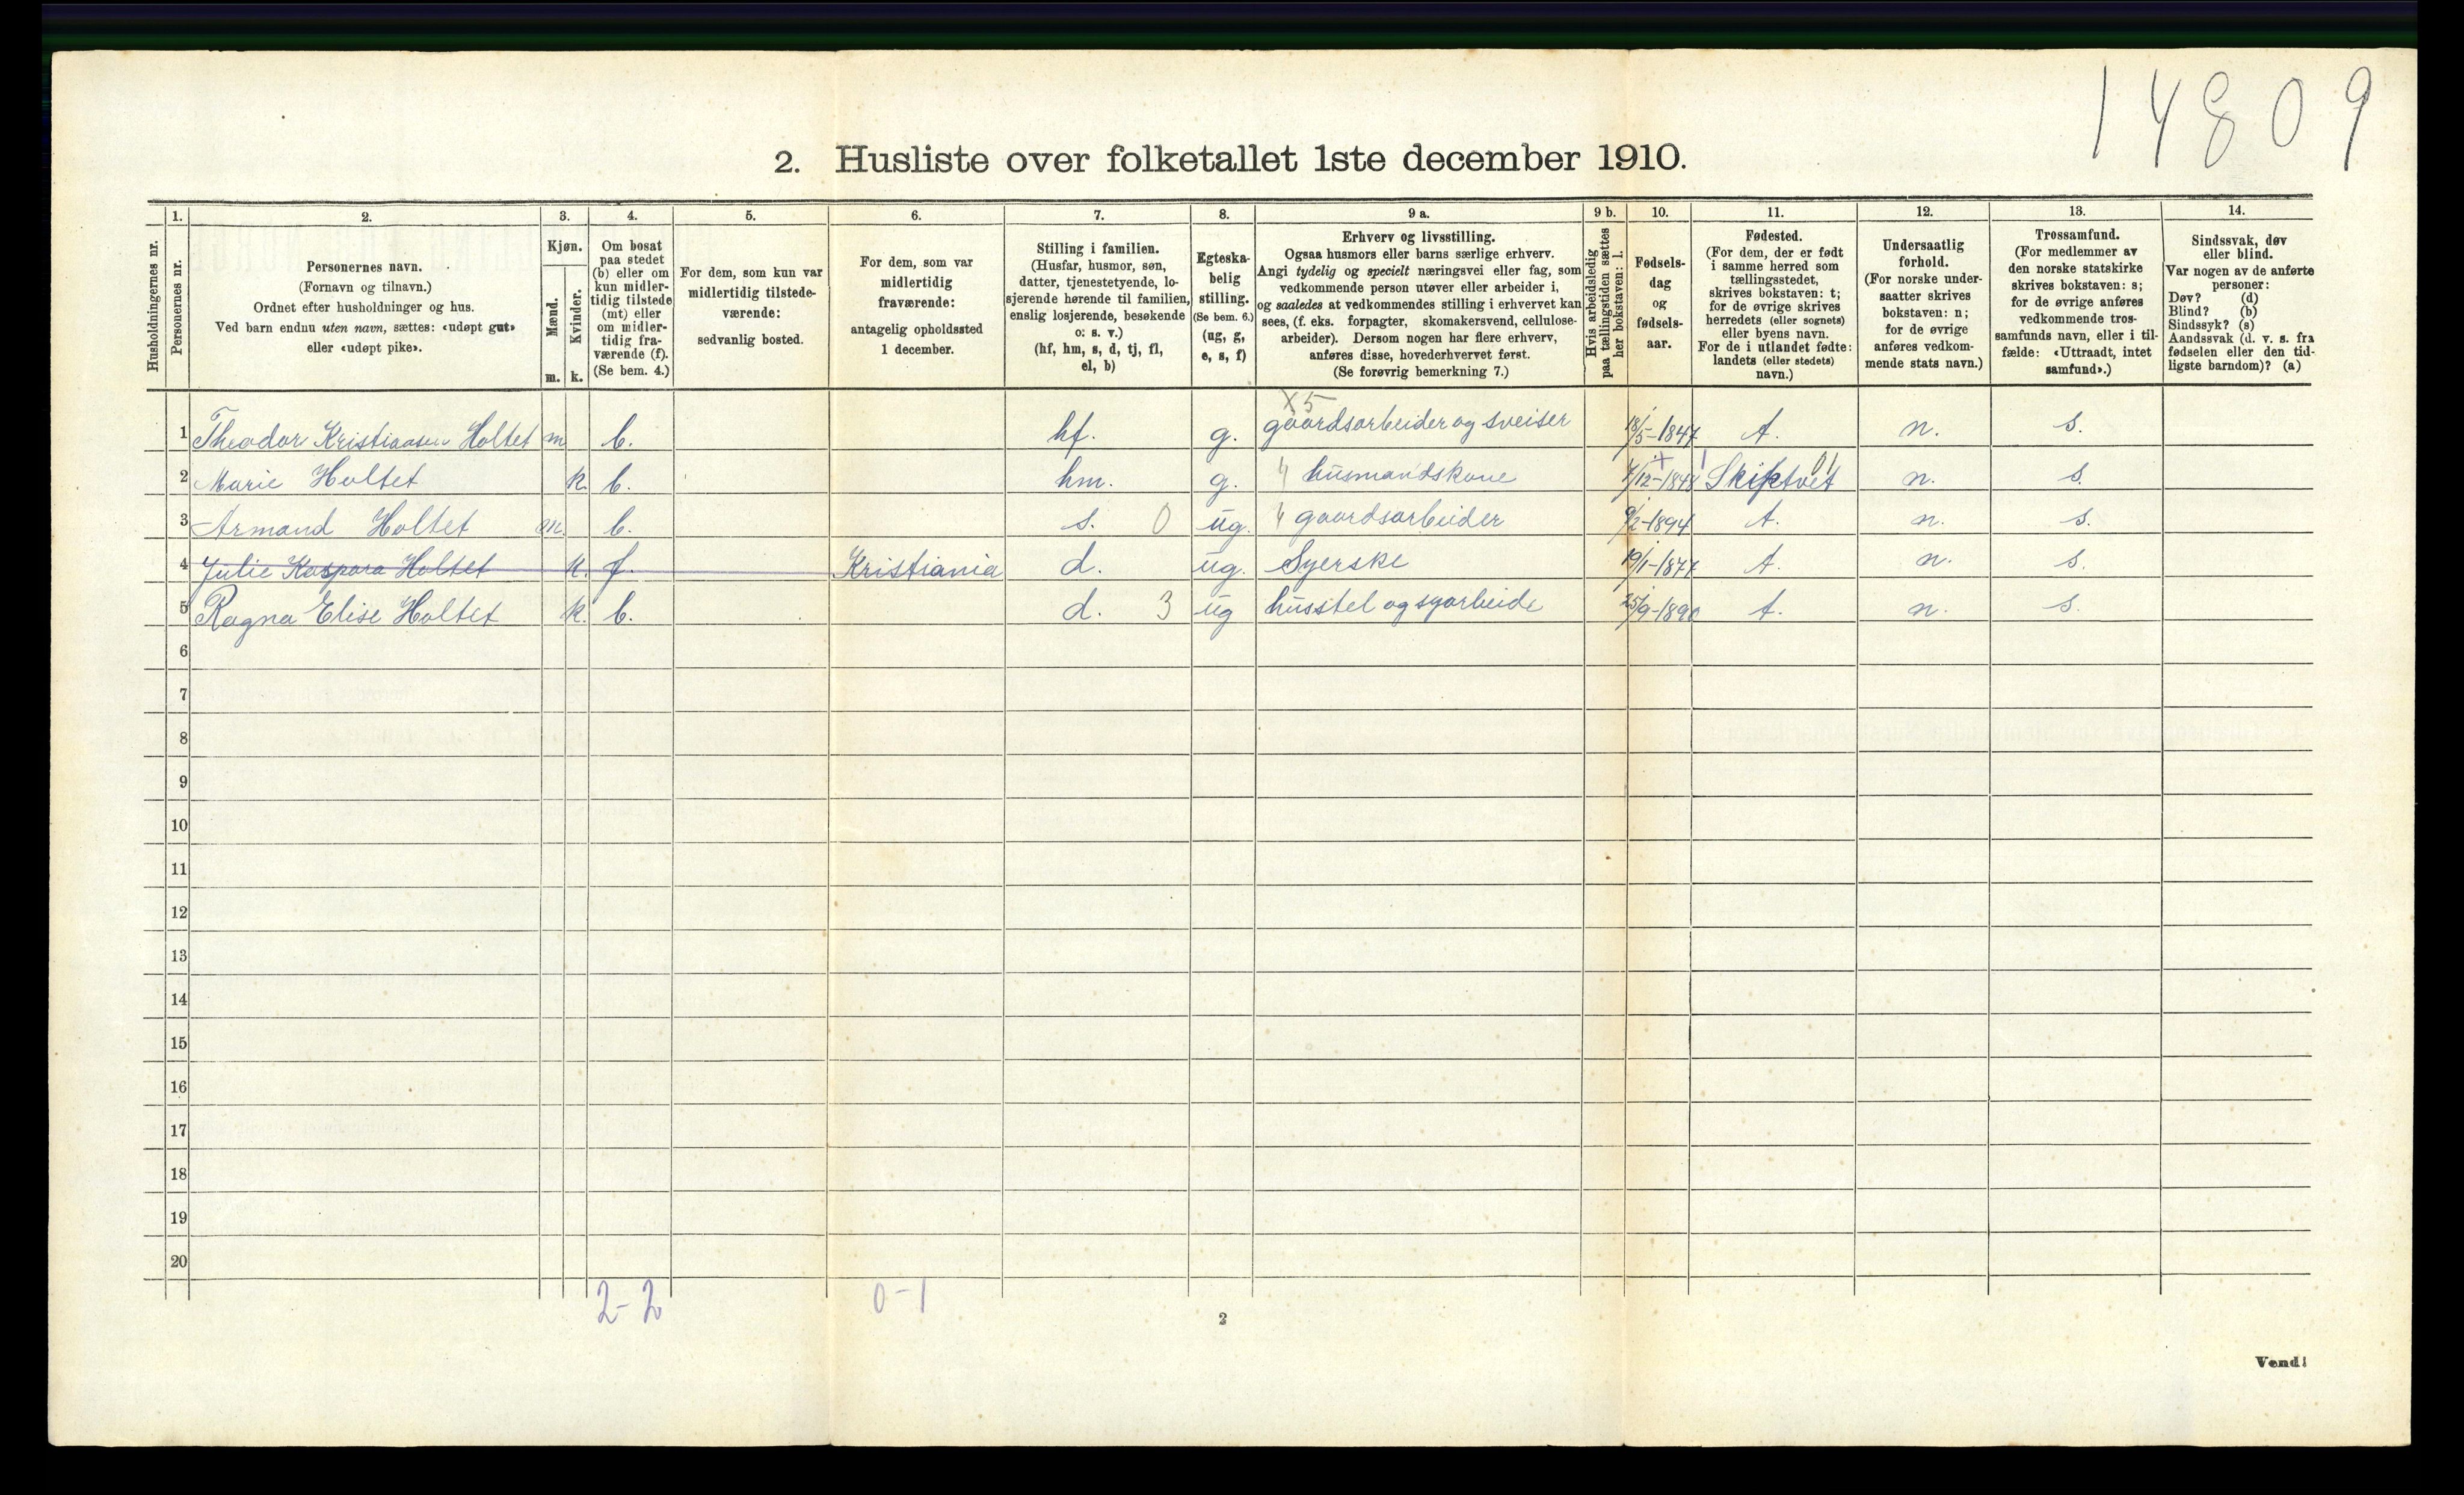 14809
2. Husliste over folketallet 1ste december 1910.
1. 2. 3. 4. 5. 6. 7. 8. 9 a. 9 b. 10. 11. 12. 13. 14.
Husholdningernes nr.
Personernes nr.
Personernes navn.
(Fornavn og tilnavn.)
Ordnet efter husholdninger og hus.
Ved barn endnu uten navn, sættes: «udøpt gut»
eller «udøpt pike».
Kjøn.
Mænd.
Kvinder.
m. k.
Om bosat
paa stedet
(b) eller om
kun midler-
tidig tilstede
(mt) eller
om midler-
tidig fra-
værende (f).
(Se bem. 4.)
For dem, som kun var
midlertidig tilstede-
værende:
sedvanlig bosted.
For dem, som var
midlertidig
fraværende:
antagelig opholdssted
1 december.
Stilling i familien.
(Husfar, husmor, søn,
datter, tjenestetyende, lo-
sjerende hørende til familien,
enslig losjerende, besøkende
o: s. v.)
(hf, hm, s, d, tj, fl,
el, b)
Egteska-
belig
stilling.
(Se bem. 6.)
(ug, g,
e, s, f)
Erhverv og livsstilling.
Ogsaa husmors eller barns særlige erhverv.
Angi tydelig og specielt næringsvei eller fag, som
vedkommende person utøver eller arbeider i,
og saaledes at vedkommendes stilling i erhvervet kan
sees, (f. eks. forpagter, skomakersvend, cellulose-
arbeider). Dersom nogen har flere erhverv,
anføres disse, hovederhvervet først.
(Se forøvrig bemerkning 7.)
Hvis arbeidsledig
paa tællingstiden sættes
her bokstaven: l.
Fødsels-
dag
og
fødsels-
aar.
Fødested.
(For dem, der er født
i samme herred som
tællingsstedet,
skrives bokstaven: t;
for de øvrige skrives
herredets (eller sognets)
eller byens navn.
For de i utlandet fødte:
landets (eller stedets)
navn.)
Undersaatlig
forhold.
(For norske under-
saatter skrives
bokstaven: n;
for de øvrige
anføres vedkom-
mende stats navn.)
Trossamfund.
(For medlemmer av
den norske statskirke
skrives bokstaven: s;
for de øvrige anføres
vedkommende tros-
samfunds navn, eller i til-
fælde: «Uttraadt, intet
samfund».)
Sindssvak, døv
eller blind.
Var nogen av de anførte
personer:
Døv? (d)
Blind? (b)
Sindssyk? (s)
Aandssvak (d. v. s. fra
fødselen eller den tid-
ligste barndom)? (a)
X5
1 Theodor Kristiansen Holtet m b. hf. g. gaardsarbeider og sveiser 18/5-1847 t. n. s.
2 Marie Holtet k. b. hm. g. husmandskone 7/12-1848 Skiptvet n. s.
3 Armand Holtet m. b. s. 0 ug. gaardsarbeider 9/2-1894 t. n. s.
4 Julie Kaspara Holtet k. f. Kristiania d. ug. Syerske 19/1-1877 t. n. s.
5 Ragna Elise Holtet k. b. d. 3 ug husstel og syarbeide 25/9-1890 t. n. s.
6
7
8
9
10
11
12
13
14
15
16
17
18
19
20
2-2 0-1
2
Vend!